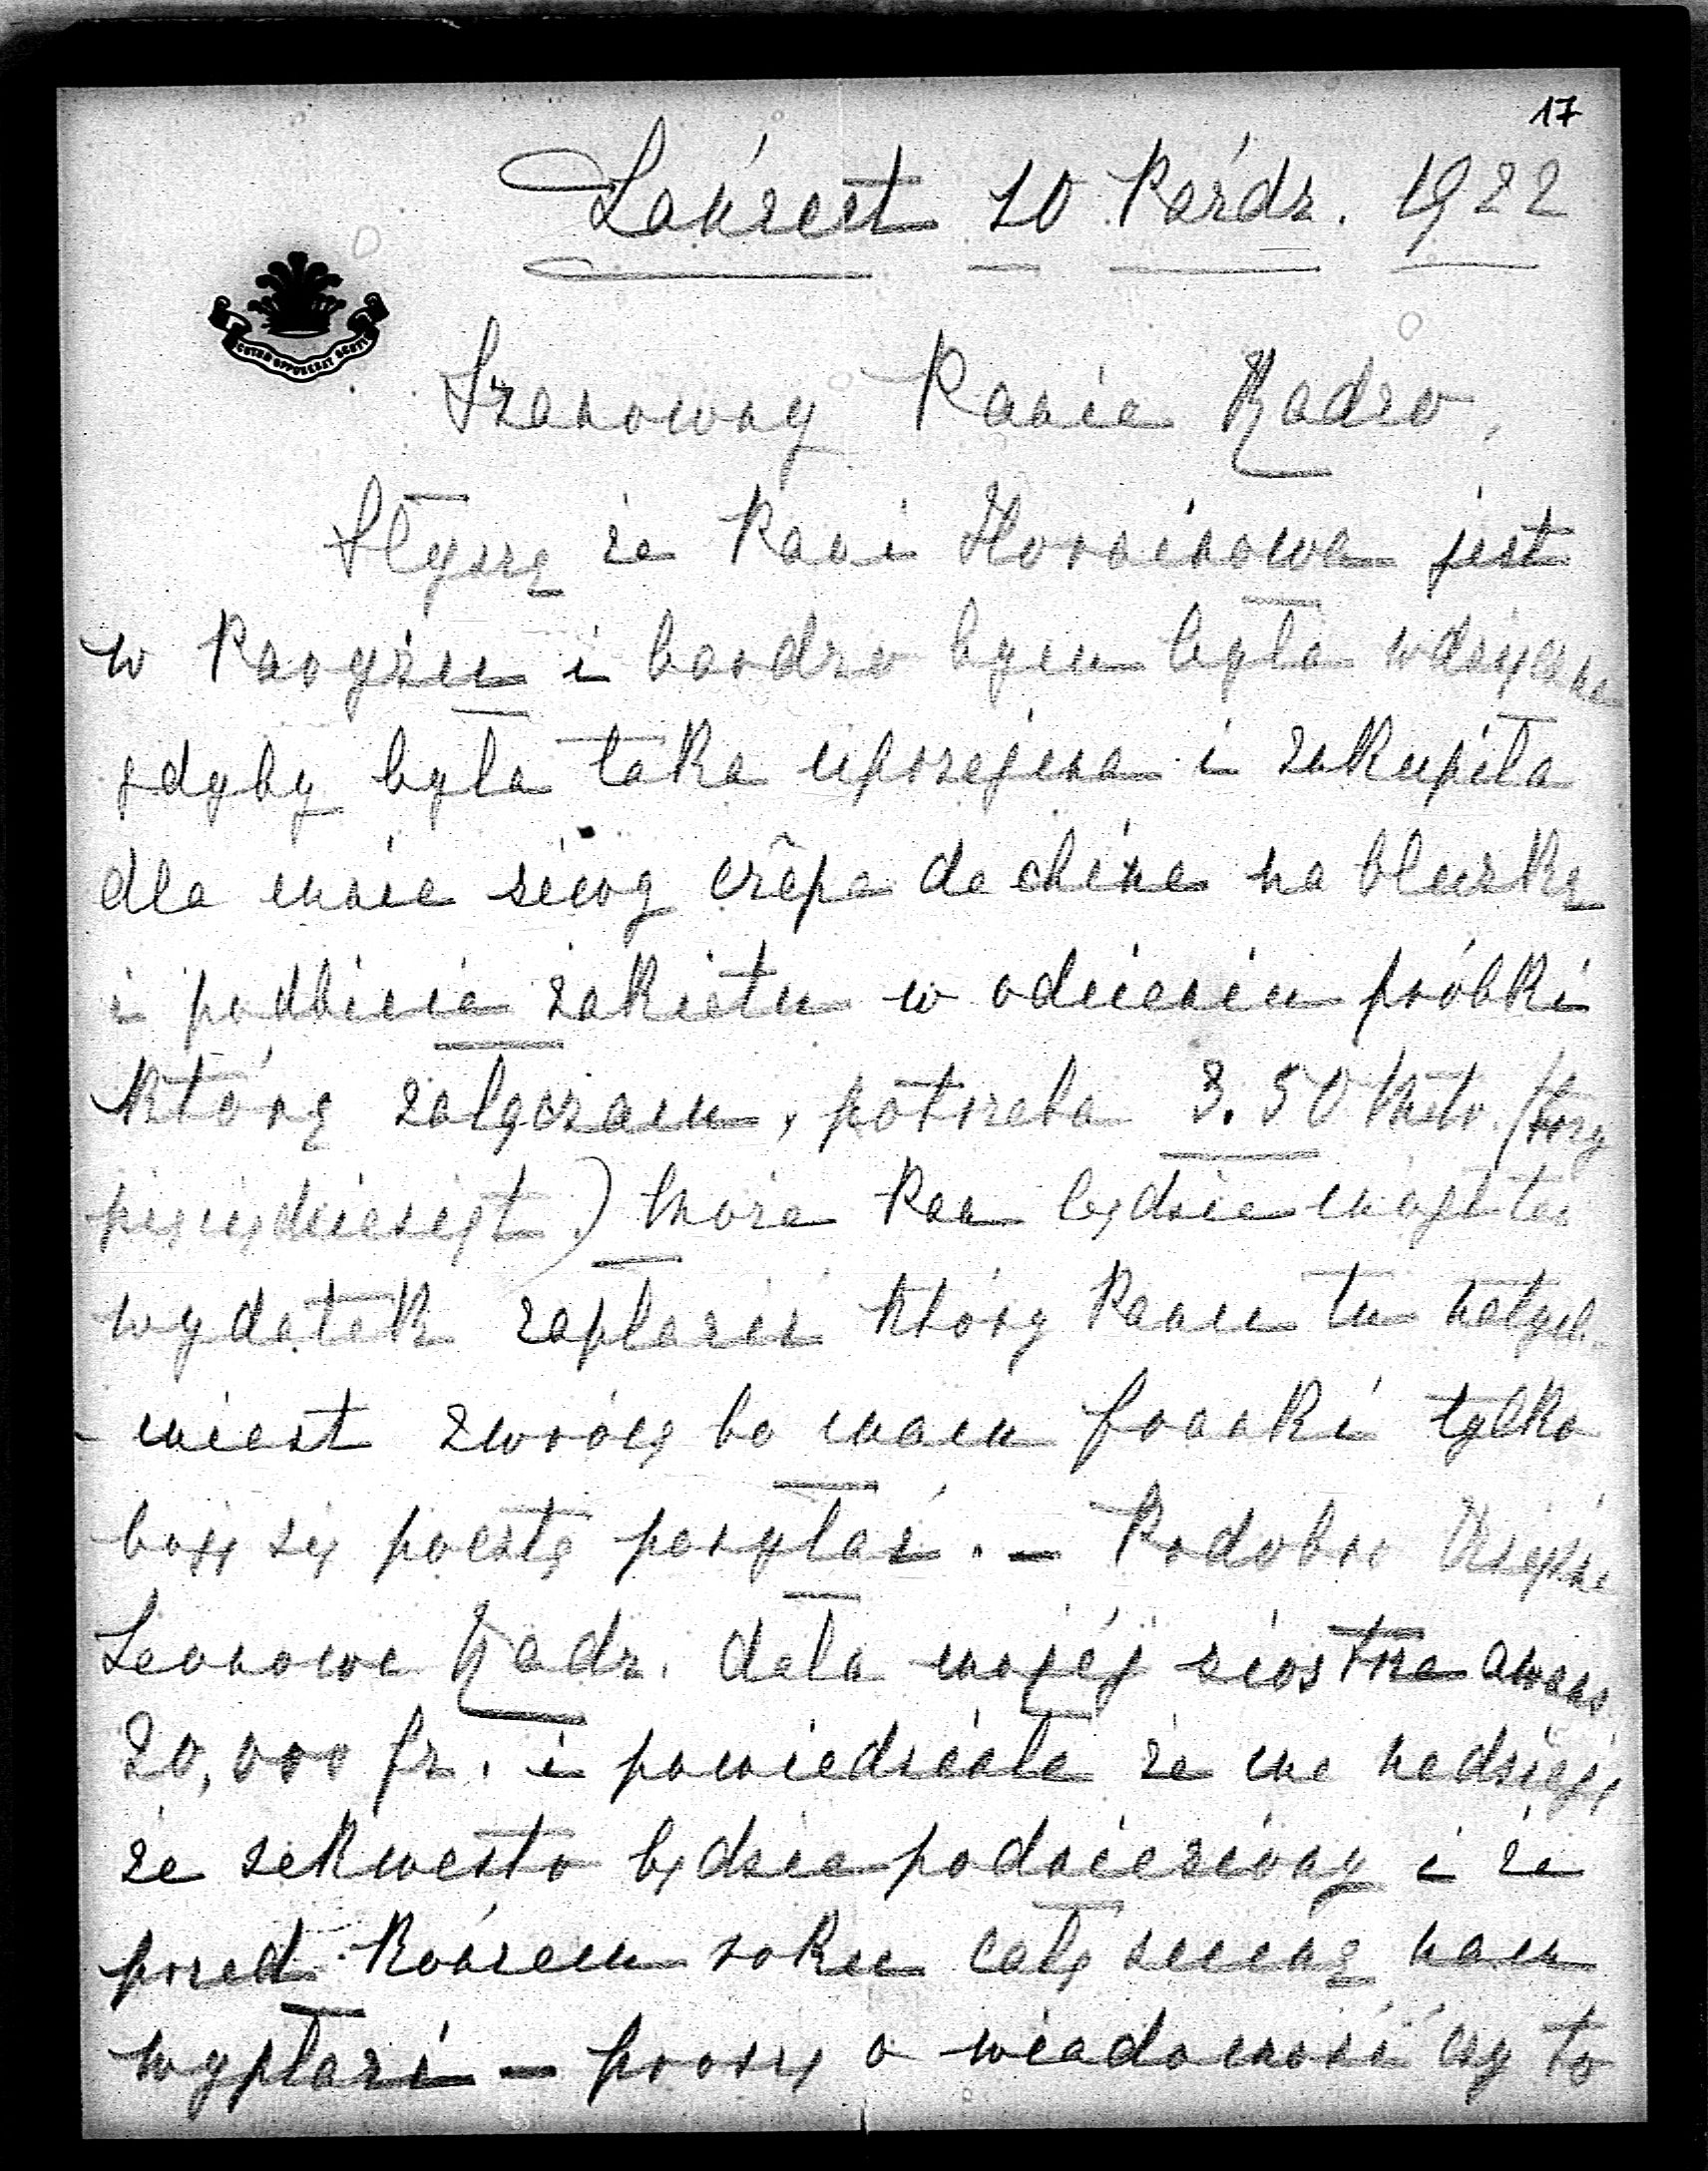 17
Łańcut 10 Paźdz. 1922
Szanowny Panie Radzo,
Słyszę że Pani Horainowa jest
w Paryżu i bardzo bym była wdzięczna
gdyby była taka uprzejma i zakupiła
dla mnie siwog crêpe de chine na bluzkę
i podbicia żakietu w odcieniu próbki
którą załączam, potrzeba 3.50 Mtr. (trzy
pięćdziesiąt) może Pan będzie mógł ten
wydatek zapłacić który Panu tu natych-
miast zwrócę bo mam franki tylko
boję się pocztą posyłać. – Podobno Księżna
Leonowa Radz. dała mojéj siostrze awans
20,000 fr. i powiedziała że ma nadzieję
że sekwestr będzie podniesiony i że
przed końcem roku całą sumę nam
wypłaci – proszę o wiadomość czy to